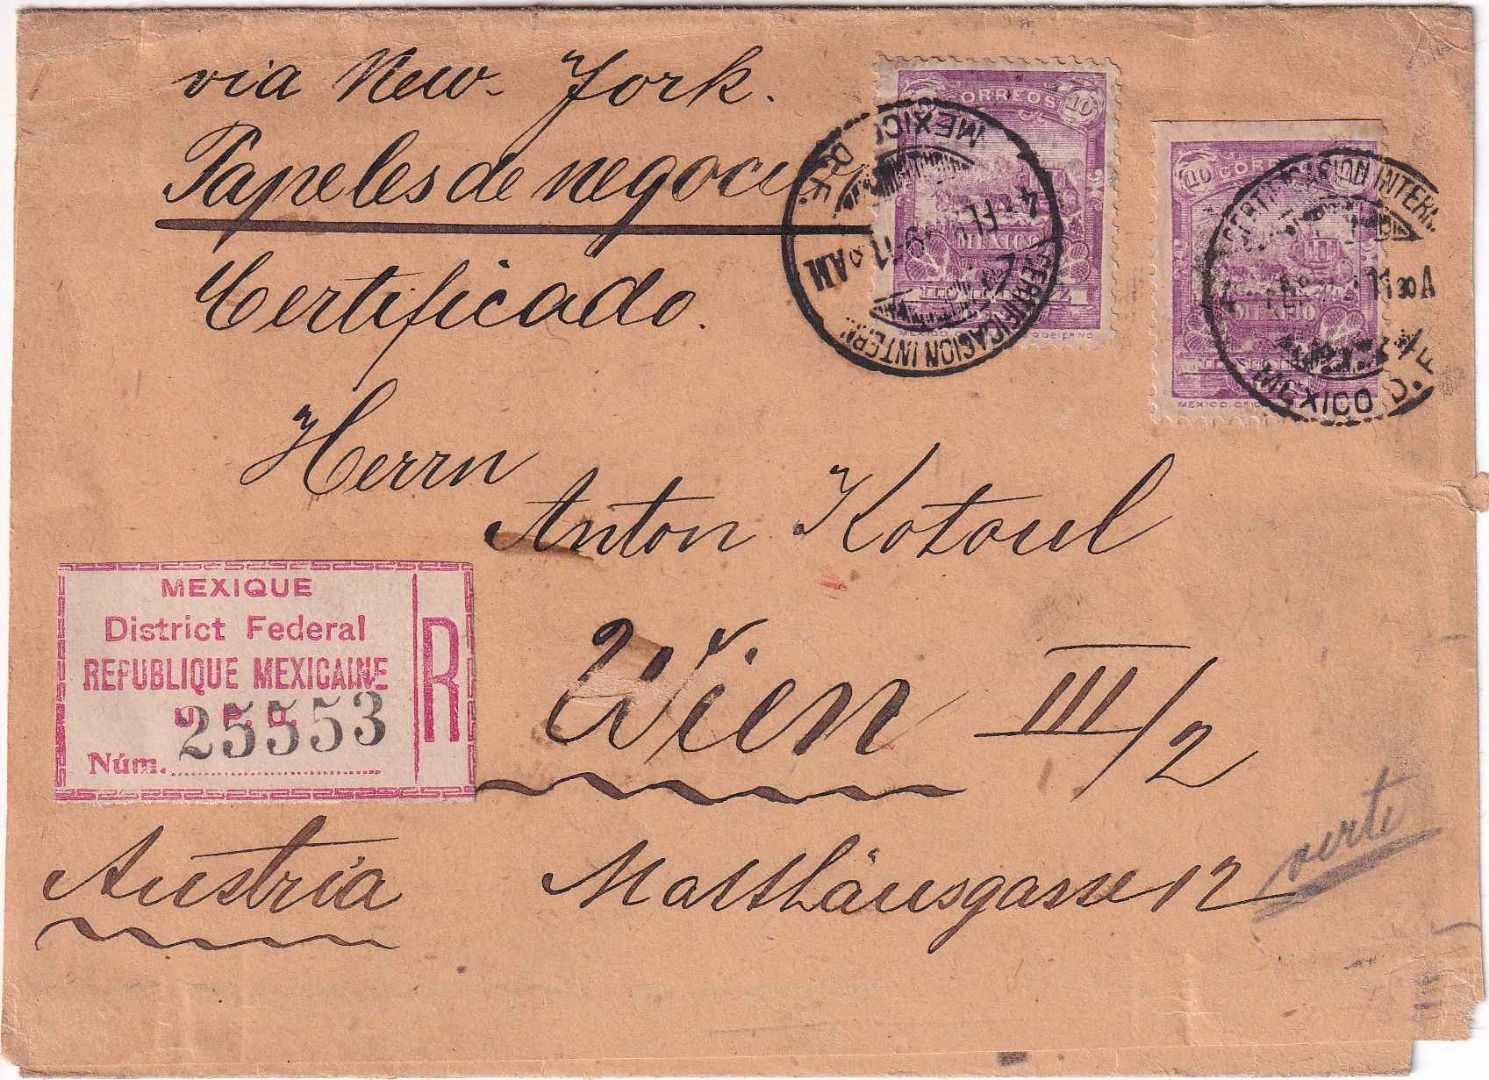 via New-York.
Papeles de negocios
Certificado.
CORREOS
10
MEXICO
MEXICO D.F.
4 FEB
AM
CERTIFICACION INTERN
10
CORREOS
MEXICO
CERTIFICACION INTERN
11 30 A
MEXICO D. F
Herrn
Anton Kotoul
MEXIQUE
District Federal
REPUBLIQUE MEXICAINE
25553
Núm.
R
Wien III/2
Austria
Matthäusgasse 12
verte